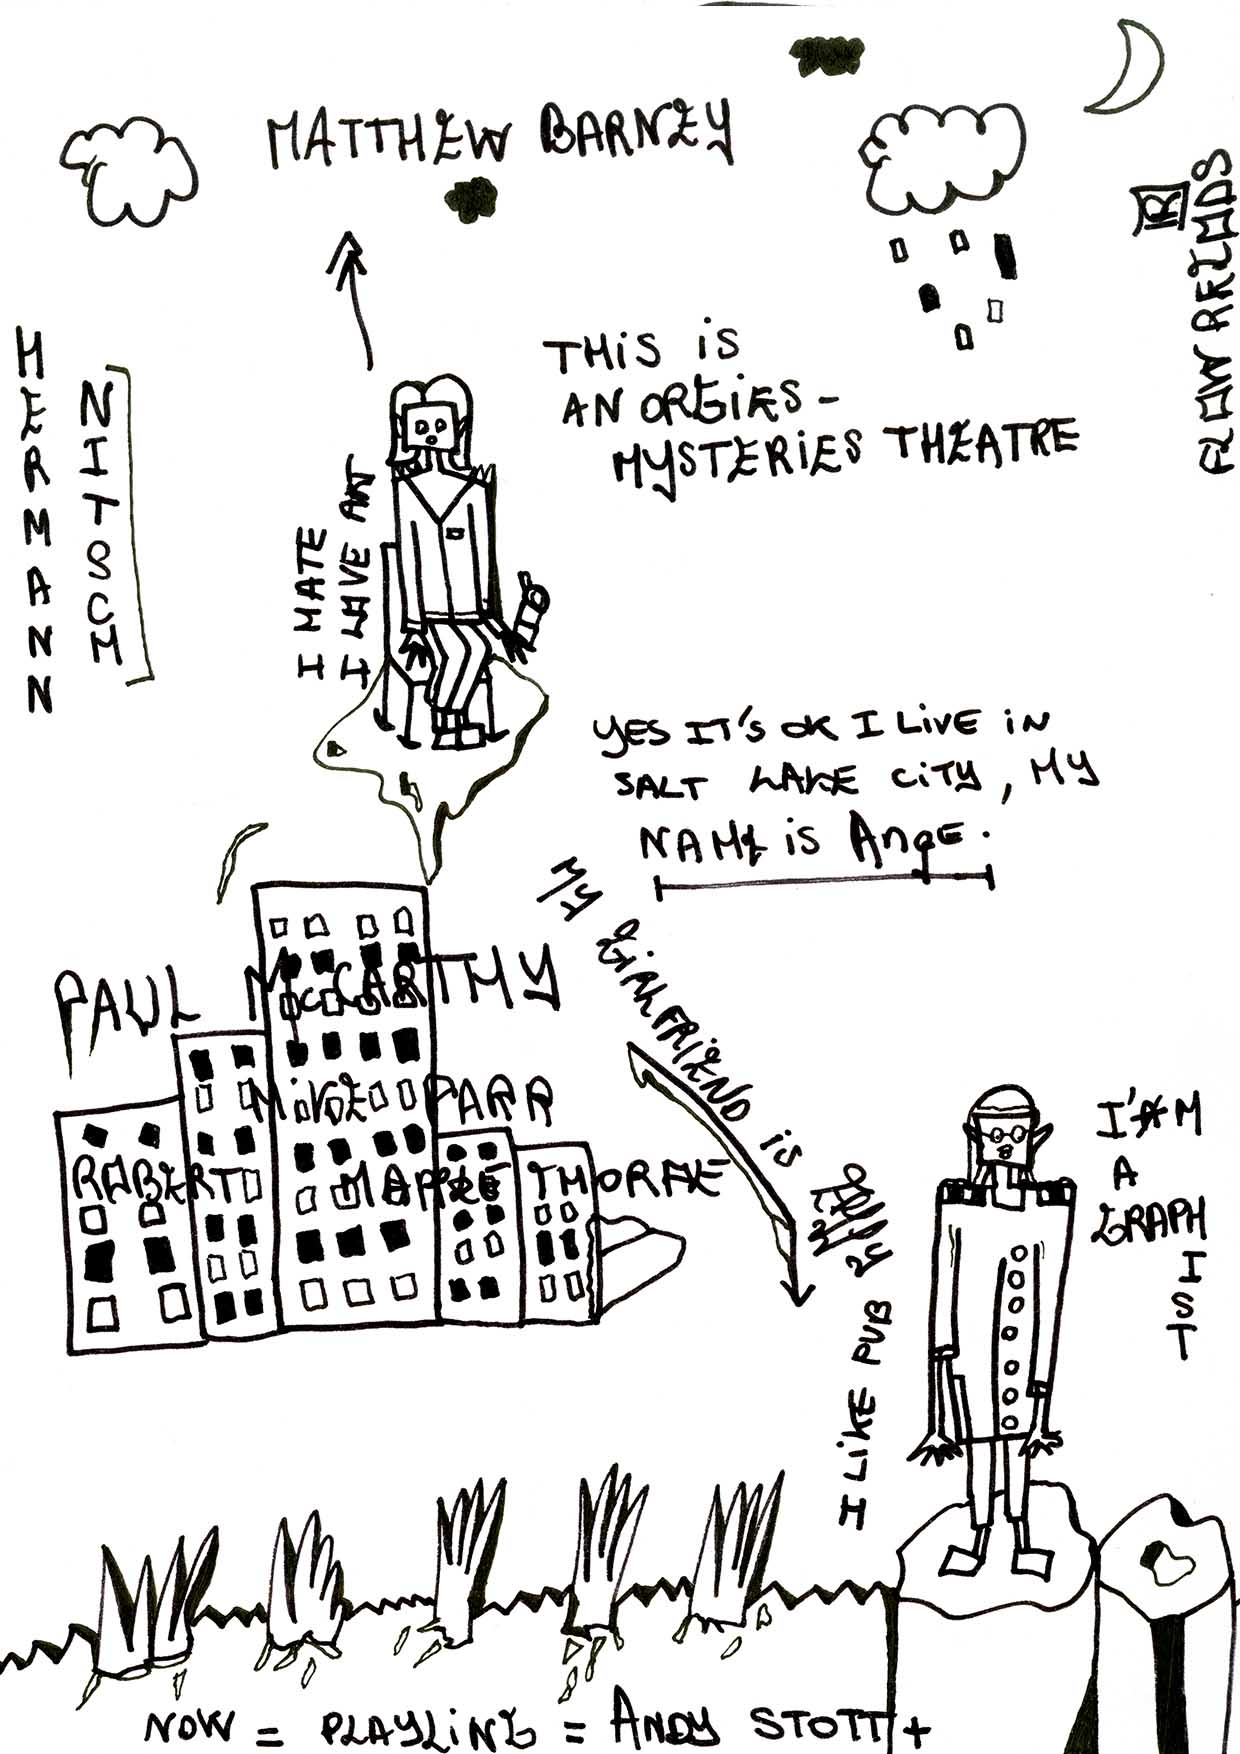 MATTHEW BARNEY
R
FLOW REINDS
HERMANN
NITSCH
THiS iS
AN ORGiES-
MYSTERiES THEATRE
I HATE
I LOVE ART
YES IT'S OK I LiVE iN
SALT LAKE CiTY, MY
NAME iS Ange.
MY GiRLFRiEND iS
PAUL McCARTHY
MiKE PARR
ROBERT MAPPLETHORPE
I LiKE PUB
I'AM
A
GRAPH
IST
NOW = PLAYLiNG = ANDY STOTT +